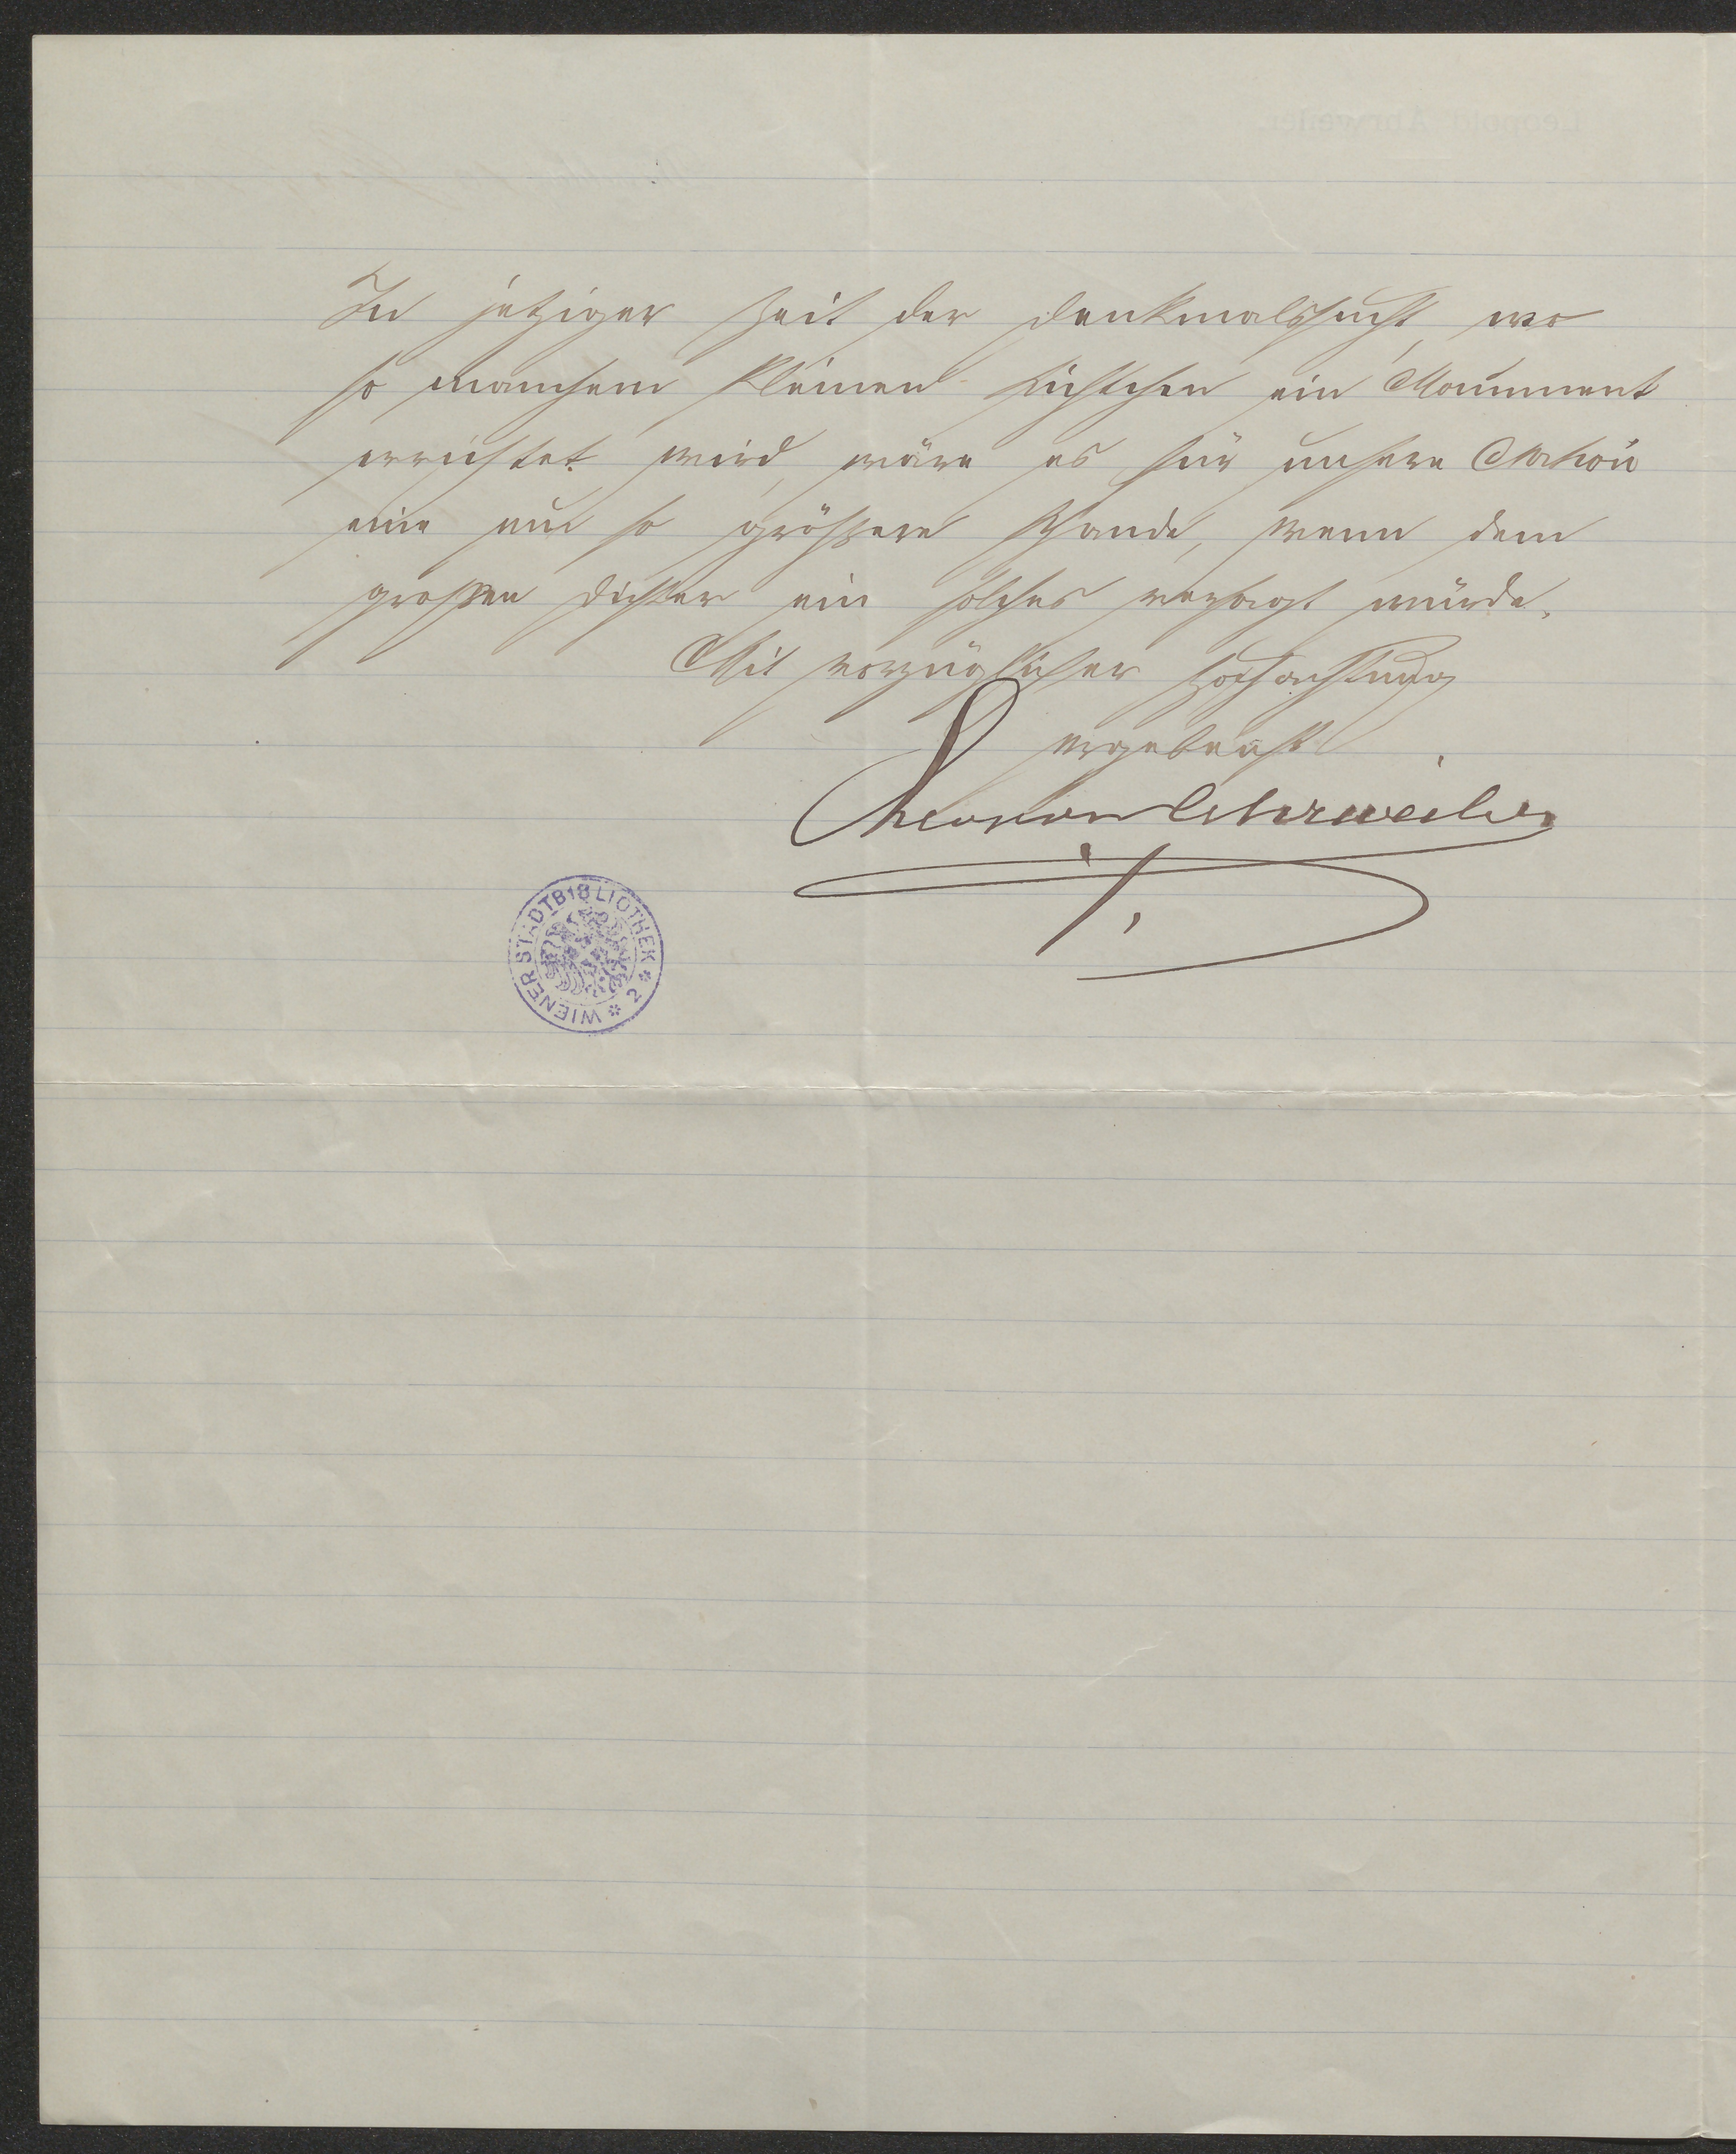 In jetziger Zeit der Denkmalssucht, wo
so manchem kleinen Lichtchen ein Monument
errichtet wird, wäre es für unsere Nation
eine um so größere Schande, wenn dem
großen Dichter ein solches versagt würde.
Mit vorzüglicher Hochachtung
ergebenst
Ahrweiler
WIENER STADTBIBLIOTHEK * 2 *